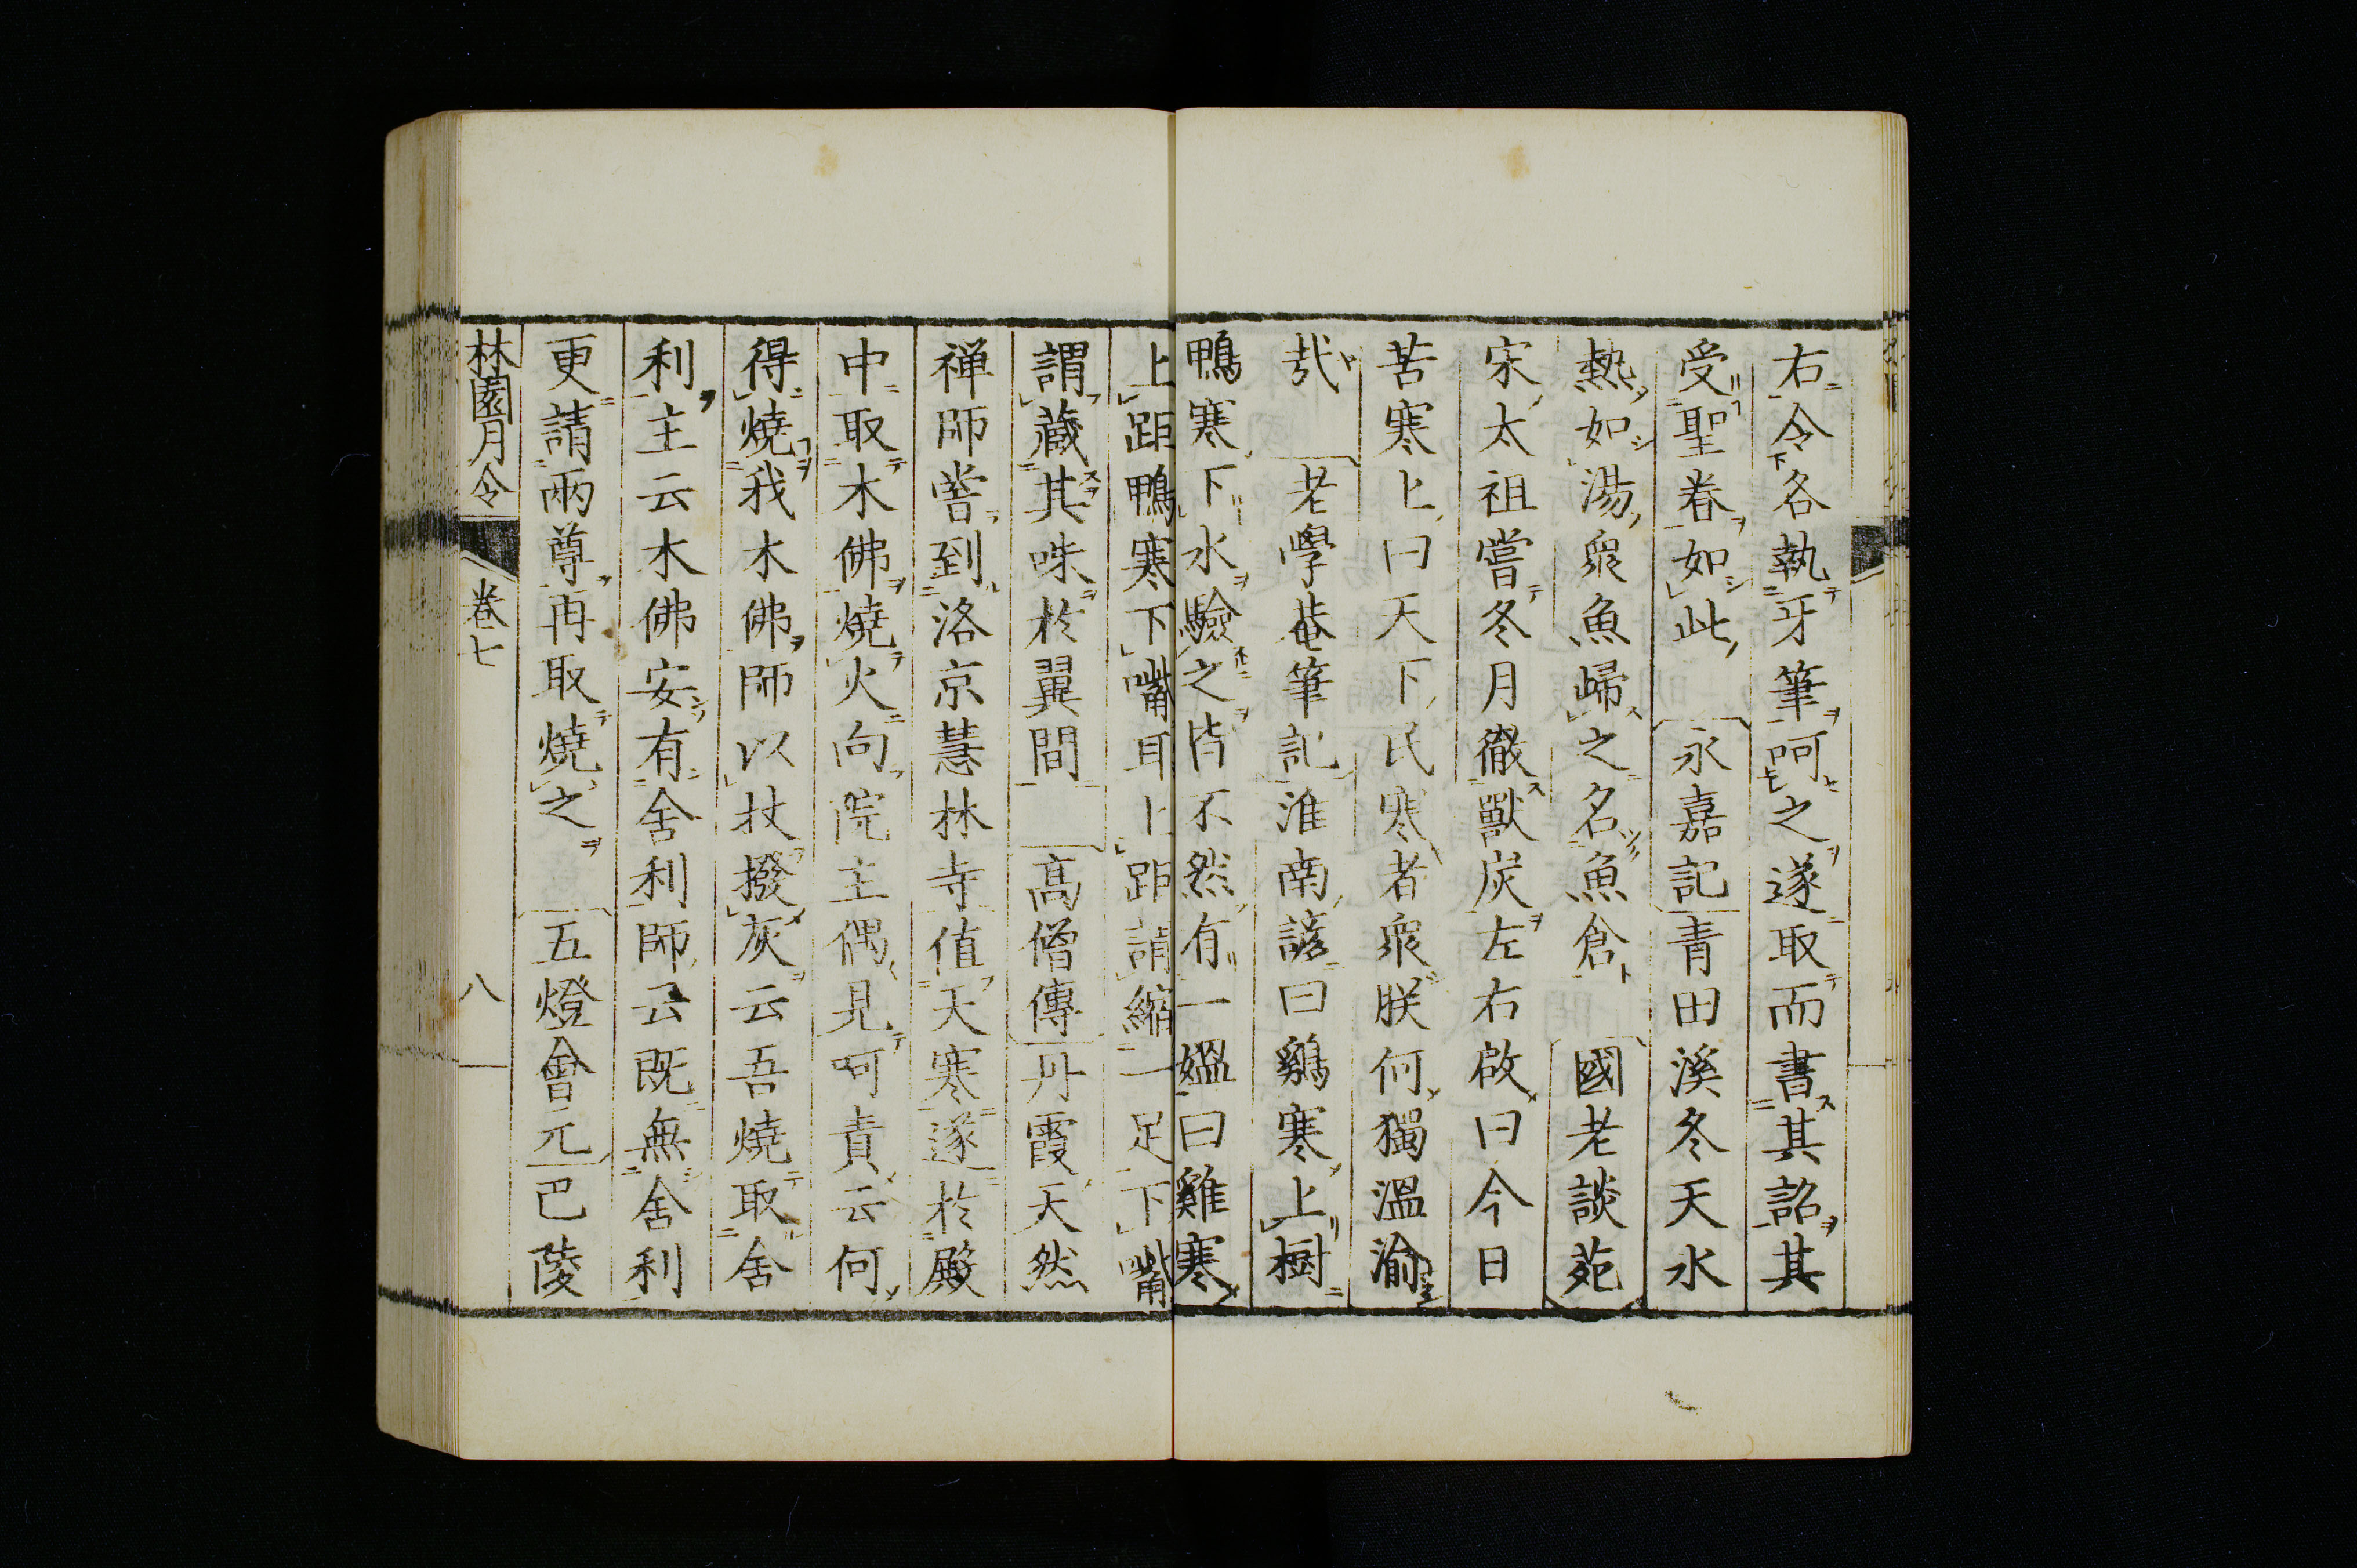 右令各執牙筆呵之遂取而書其詔其
受聖眷如此永嘉記青田溪冬天水
熱如湯眾魚歸之名魚倉國老談苑
宋太祖嘗冬月徹獸炭左右啟曰今日
苦寒上曰天下民寒者眾朕何獨溫渝
哉老學菴筆記淮南諺曰鷄寒上樹
鴨寒下水驗之皆不然有一媼曰雞寒
上距鴨寒下嘴耳上距謂縮一足下嘴
謂藏其咮於翼間高僧傳丹霞天然
禅師嘗到洛京慧林寺值天寒遂於殿
中取木佛燒火向院主偶見呵責云何
得燒我木佛師以杖撥灰云吾燒取舍
利主云木佛安有舍利師云既無舍利
更請兩尊再取燒之五燈會元巴陵
林園月令 卷七 八